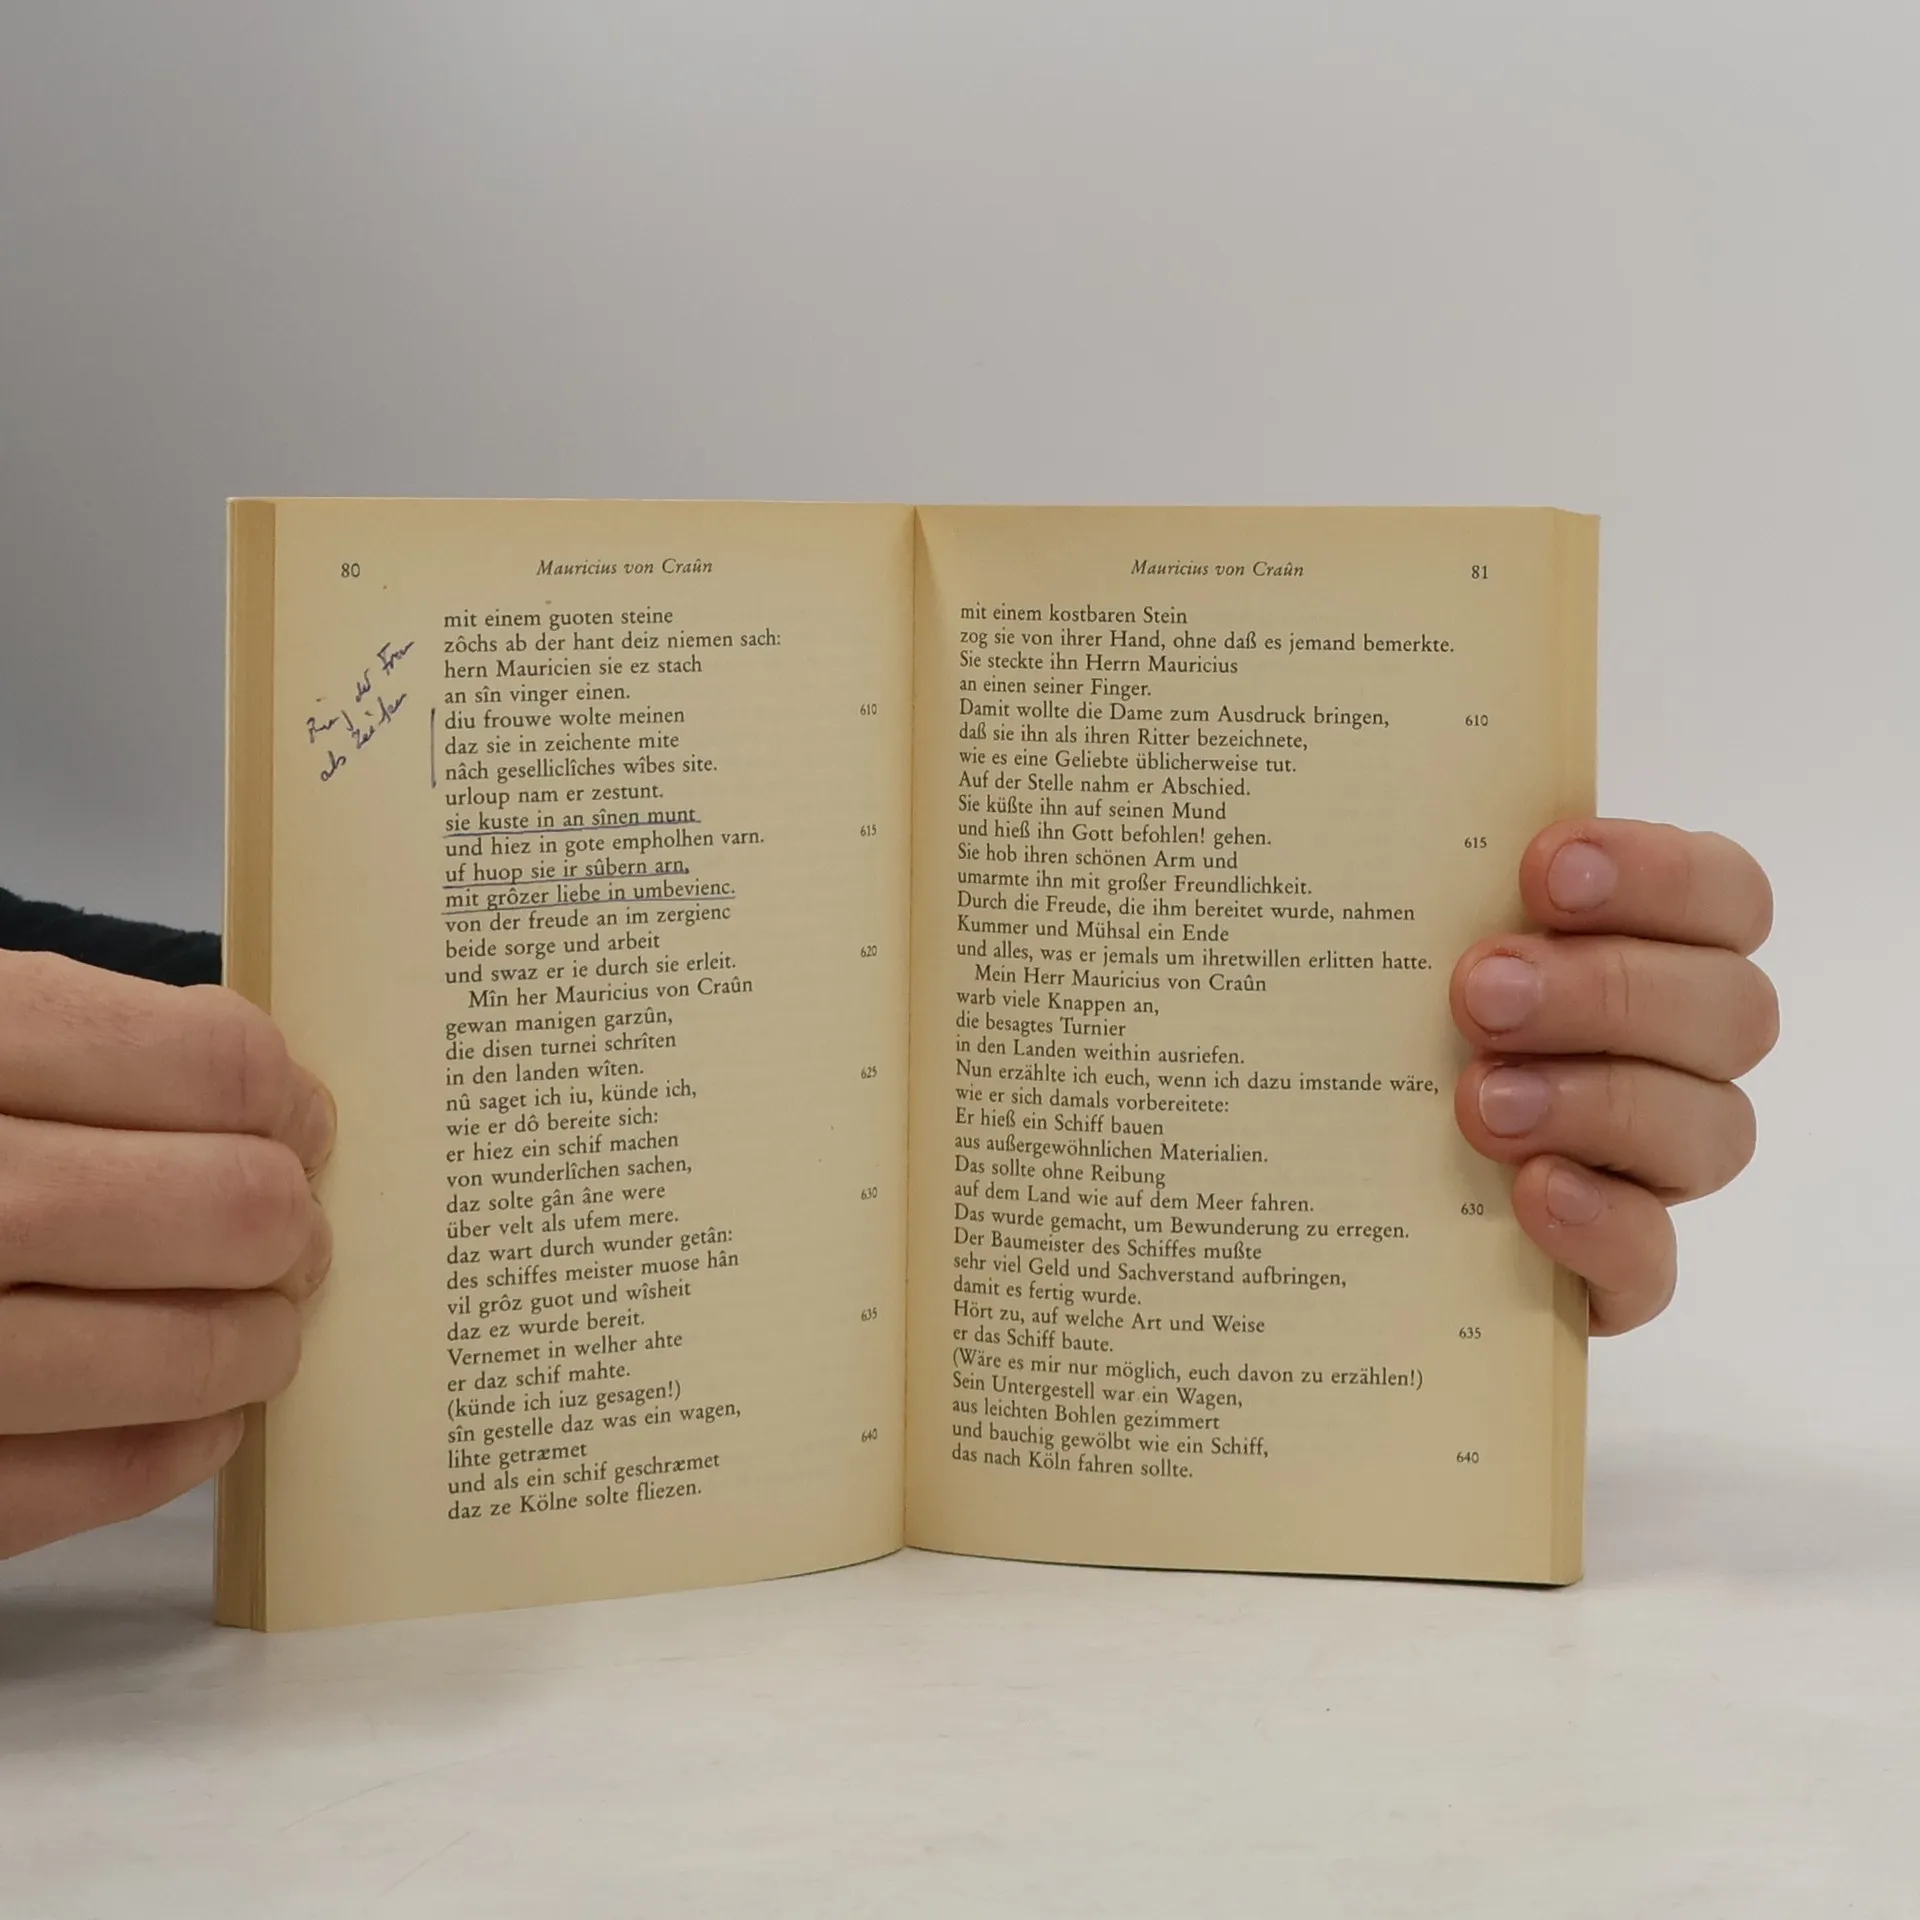 80
Mauricius von Craûn
mit einem guoten steine
zôchs ab der hant deiz niemen sach:
hern Mauricien sie ez stach
an sîn vinger einen.
diu frouwe wolte meinen 610
daz sie in zeichente mite
nâch gesellicliches wîbes site.
urloup nam er zestunt.
sie kuste in an sînen munt
und hiez in gote empholhen varn. 615
uf huop sie ir sûbern arn,
mit grôzer liebe in umbevienc.
von der freude an im zergienc
beide sorge und arbeit
und swaz er ie durch sie erleit. 620
Mîn her Mauricius von Craûn
gewan manigen garzûn,
die disen turnei schrîten
in den landen wîten.
nû saget ich iu, künde ich, 625
wie er dô bereite sich:
er hiez ein schif machen
von wunderlîchen sachen,
daz solte gân âne were
über velt als ufem mere. 630
daz wart durch wunder getân:
des schiffes meister muose hân
vil grôz guot und wîsheit
daz ez wurde bereit.
Vernemet in welher ahte 635
er daz schif mahte.
(künde ich iuz gesagen!)
sîn gestelle daz was ein wagen,
lihte getræmet
und als ein schif geschræmet 640
daz ze Kölne solte fliezen.
Ring der Frau
als Zeichen
Mauricius von Craûn
81
mit einem kostbaren Stein
zog sie von ihrer Hand, ohne daß es jemand bemerkte.
Sie steckte ihn Herrn Mauricius
an einen seiner Finger.
Damit wollte die Dame zum Ausdruck bringen, 610
daß sie ihn als ihren Ritter bezeichnete,
wie es eine Geliebte üblicherweise tut.
Auf der Stelle nahm er Abschied.
Sie küßte ihn auf seinen Mund
und hieß ihn Gott befohlen! gehen. 615
Sie hob ihren schönen Arm und
umarmte ihn mit großer Freundlichkeit.
Durch die Freude, die ihm bereitet wurde, nahmen
Kummer und Mühsal ein Ende
und alles, was er jemals um ihretwillen erlitten hatte.
Mein Herr Mauricius von Craûn
warb viele Knappen an,
die besagtes Turnier
in den Landen weithin ausriefen.
Nun erzählte ich euch, wenn ich dazu imstande wäre,
wie er sich damals vorbereitete:
Er hieß ein Schiff bauen
aus außergewöhnlichen Materialien.
Das sollte ohne Reibung
auf dem Land wie auf dem Meer fahren. 630
Das wurde gemacht, um Bewunderung zu erregen.
Der Baumeister des Schiffes mußte
sehr viel Geld und Sachverstand aufbringen,
damit es fertig wurde.
Hört zu, auf welche Art und Weise 635
er das Schiff baute.
(Wäre es mir nur möglich, euch davon zu erzählen!)
Sein Untergestell war ein Wagen,
aus leichten Bohlen gezimmert
und bauchig gewölbt wie ein Schiff, 640
das nach Köln fahren sollte.